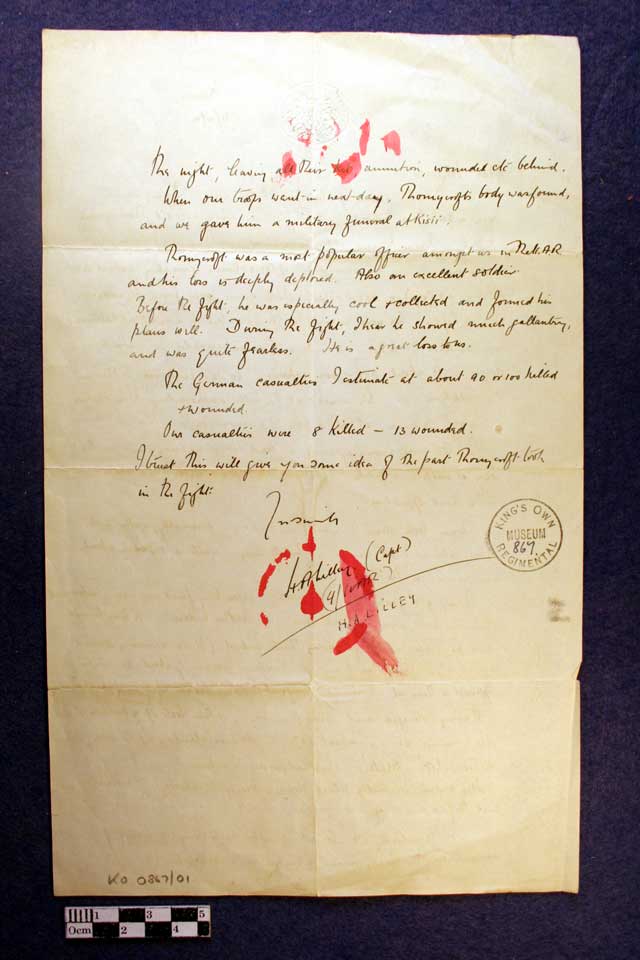 the night, leaving all their ammution, wounded etc behind.
When our troops went in next day, Thorneycrofts body was found,
and we gave him a military funeral at Kisii.
Thorneycroft was a most popular officer amongst us in the K.A.R
and his loss is deeply deplored. Also an excellent soldier
Before the fight, he was especially cool + collected and formed his
plans well. During the fight, I hear he showed much gallantry,
and was quite fearless. He is a great loss to us.
The German casualties I estimate at about 90 or 100 killed
+ wounded.
Our casualties were 8 killed – 13 wounded.
I trust this will give you some idea of the part Thorneycroft took
in the fight.
H A Lilley (Capt)
H.A. LILLEY
KING'S OWN
MUSEUM
867.
REGIMENTAL
KO 0867/01
0cm 1 2 3 4 5